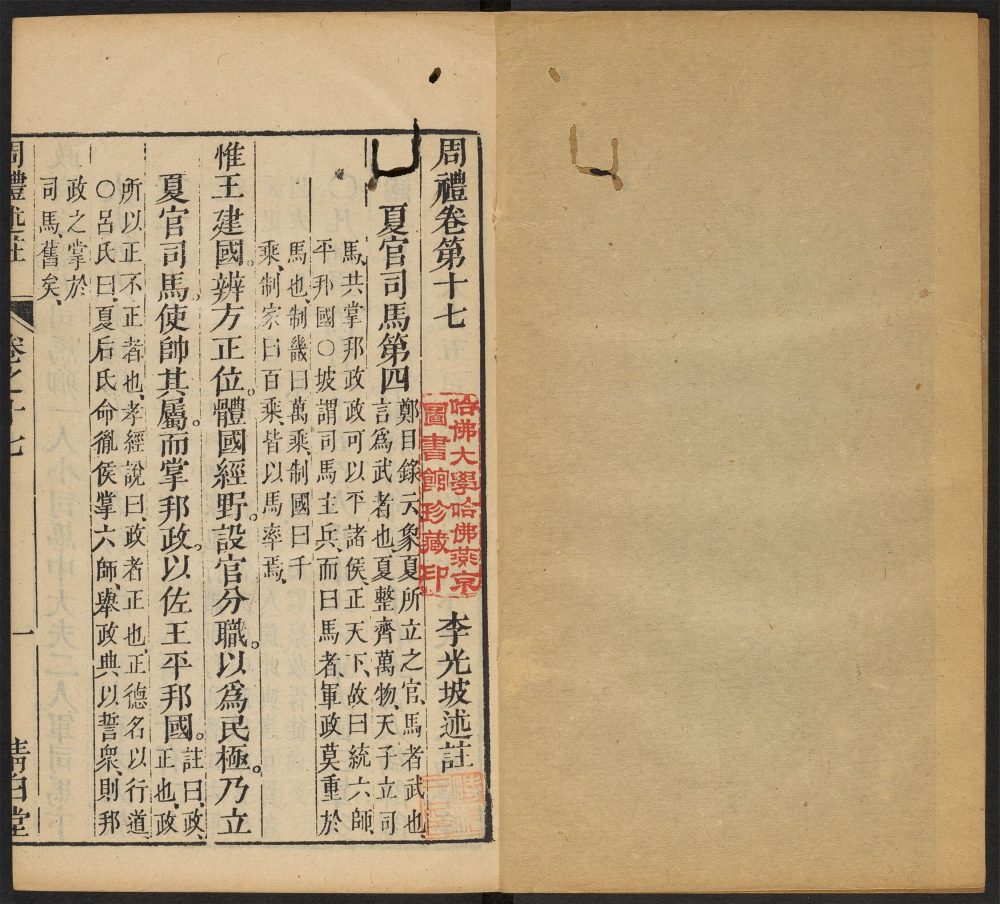 周禮卷第十七
李光坡述註
哈佛大學哈佛燕京
圖書館珍藏印
夏官司馬第四
鄭目錄云象夏所立之官、馬者武也、
言爲武者也、夏整齊萬物、天子立司
馬、共掌邦政、政可以平諸侯、正天下、故曰統六師、
平邦國○坡謂司馬主兵、而曰馬者、軍政莫重於
馬也、制畿曰萬乘、制國曰千
乘、制家曰百乘、皆以馬率焉、
惟王建國。辨方正位。體國經野。設官分職。以爲民極。乃立
夏官司馬。使帥其屬。而掌邦政。以佐王平邦國。
註曰、政、
正也、政
所以正不正者也、孝經說曰、政者正也、正德名以行道
○呂氏曰、夏后氏命胤侯掌六師、舉政典以誓衆、則邦
政之掌於
司馬、舊矣、
周禮述註
卷之十七
一
清白堂